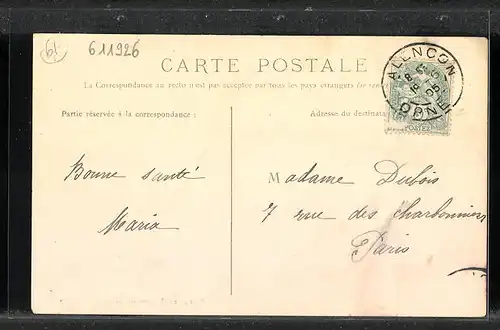 61
611926
CARTE POSTALE
La Correspondance au recto n'est pas acceptée par tous les pays étrangers
Partie réservée à la correspondance :
Adresse du destinata
ALENÇON
ORNE
POSTES
Bonne santé
Maria
Madame Dubois
7 rue des Charbonniers
Paris